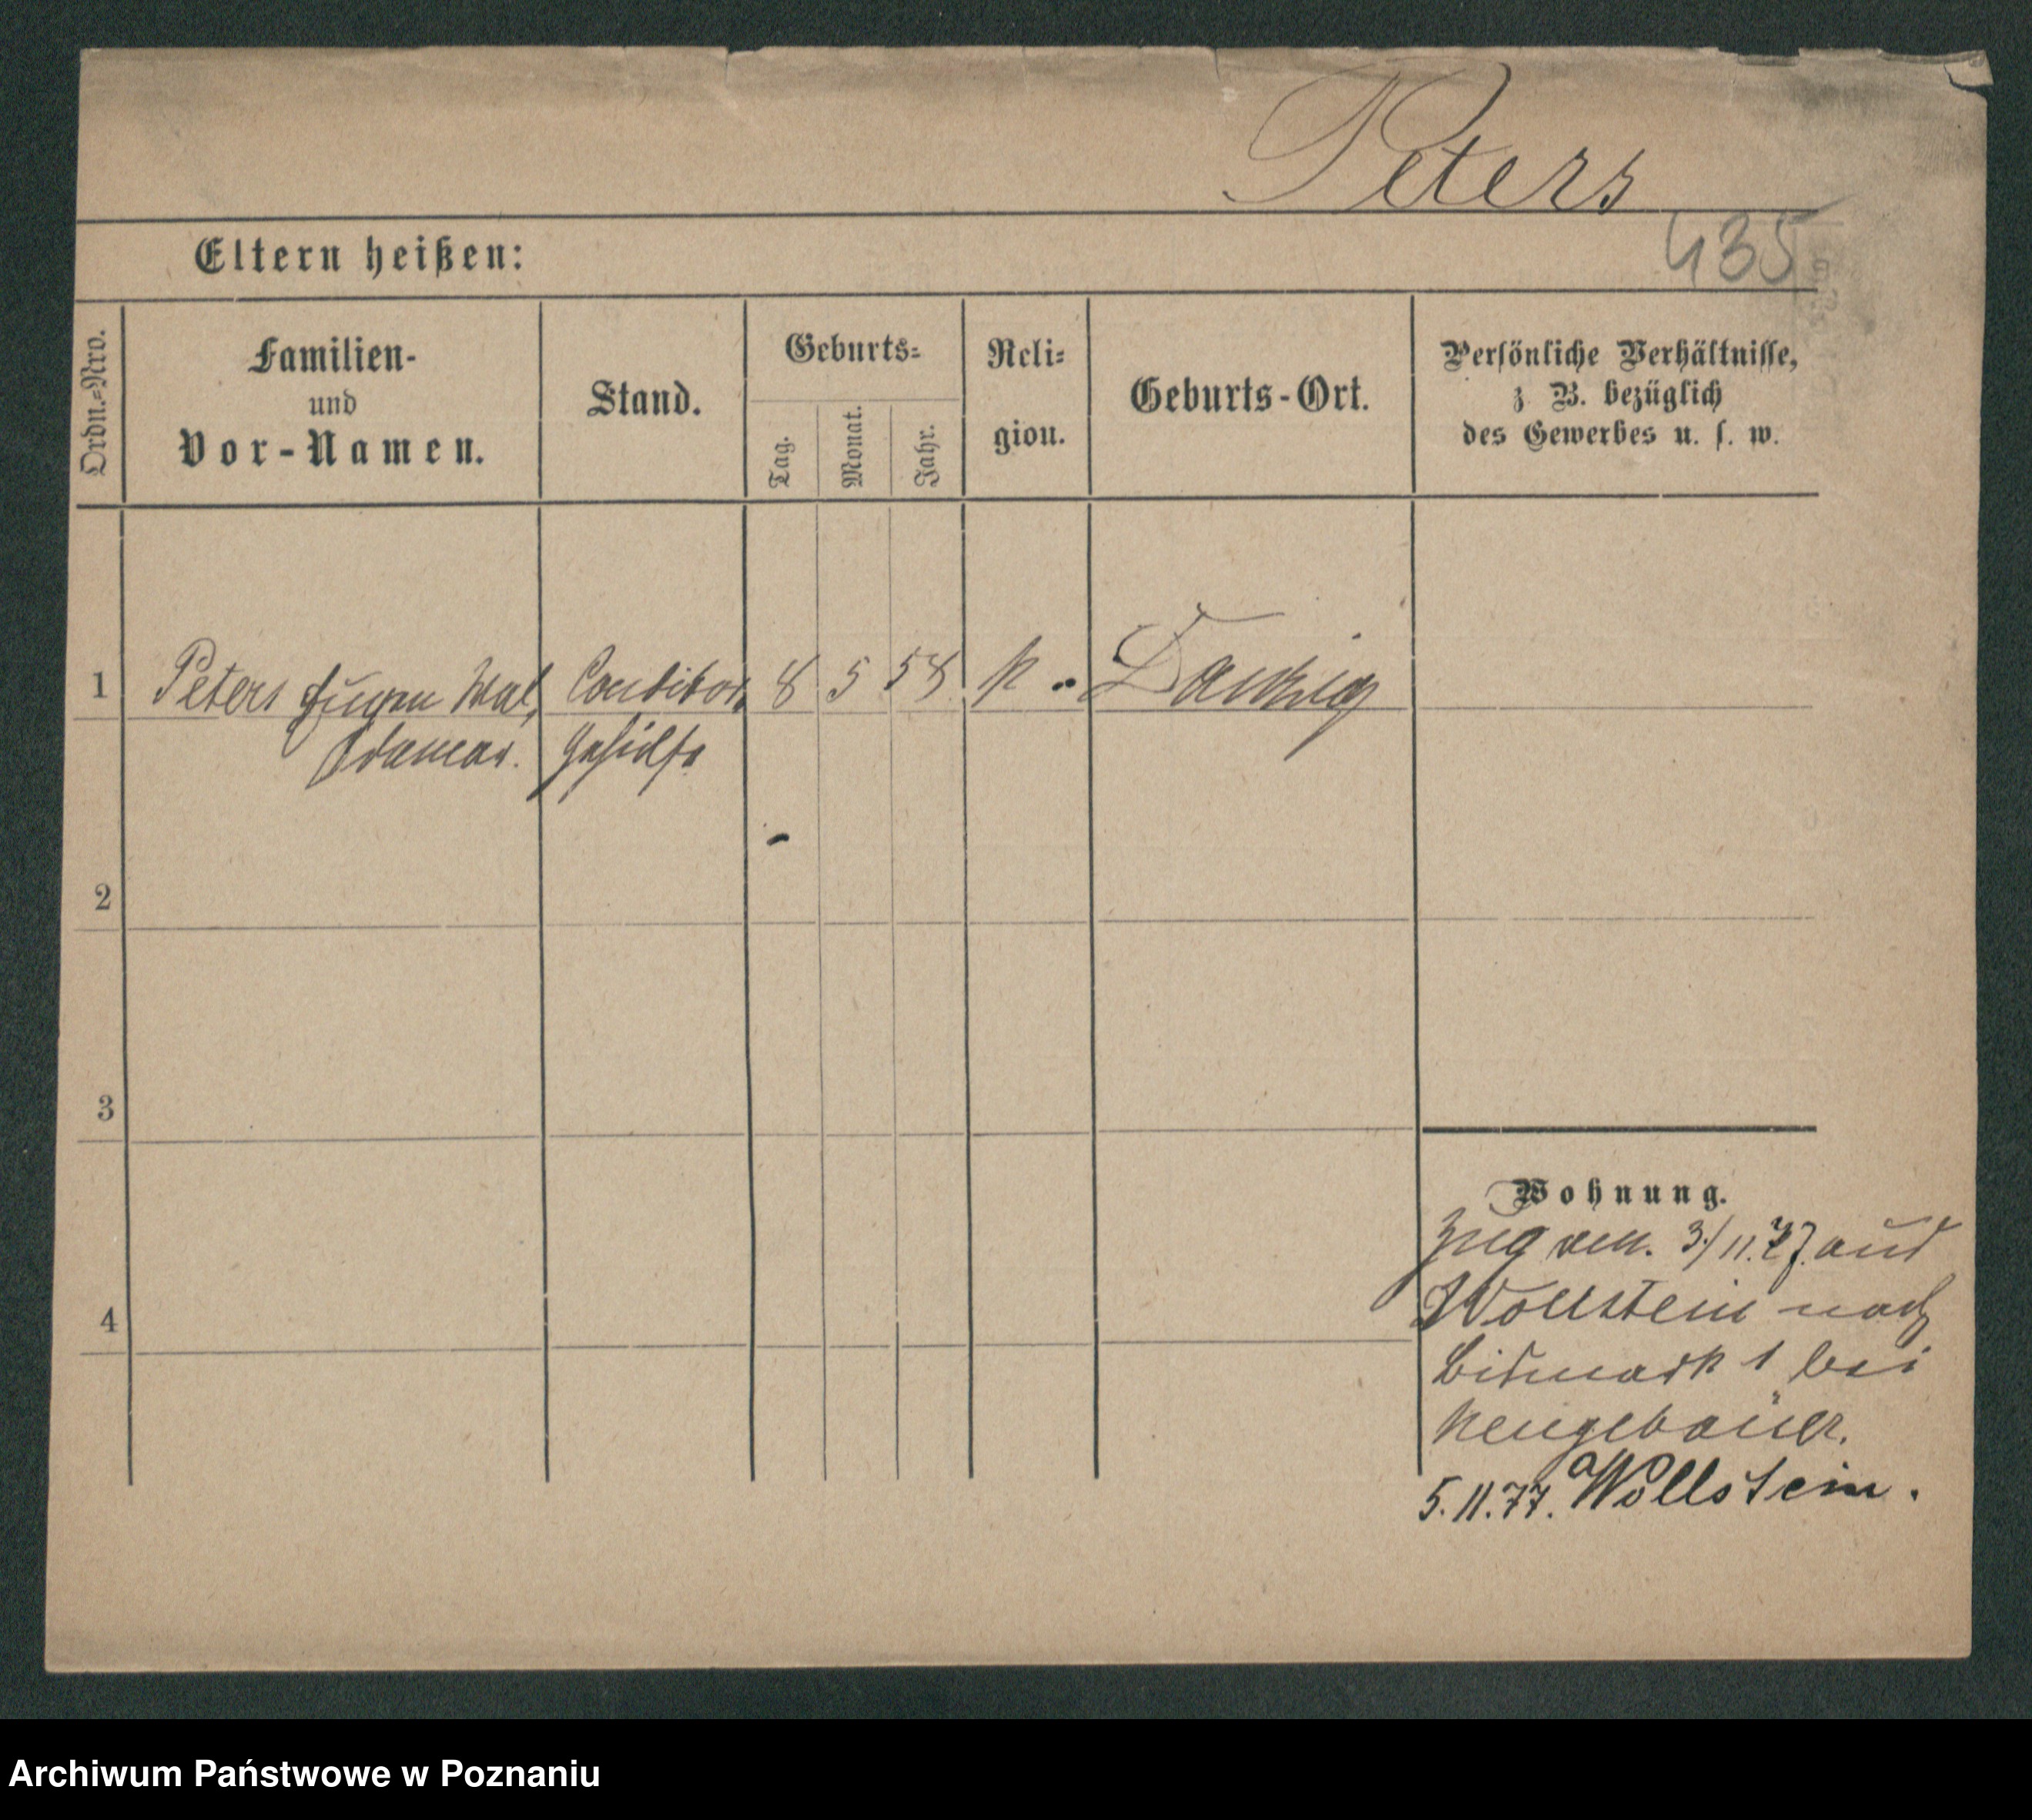 Peters
435
Eltern heißen:
Ordn.=Nro.
Familien-
und
Vor-Namen.
Stand.
Geburts=
Tag.
Monat.
Jahr.
Reli=
gion.
Geburts-Ort.
Persönliche Verhältnisse,
z. B. bezüglich
des Gewerbes u. s. w.
1 Peters Eugen Wal, Conditor, 8 5 58 k. Danzig
demar. Gehülfe
2
3
4
Wohnung.
Zug 3/11.77. aus
Wollstein nach
Bismark 1 bei
Neugebauer.
5.11.77. Wollstein.
Archiwum Państwowe w Poznaniu